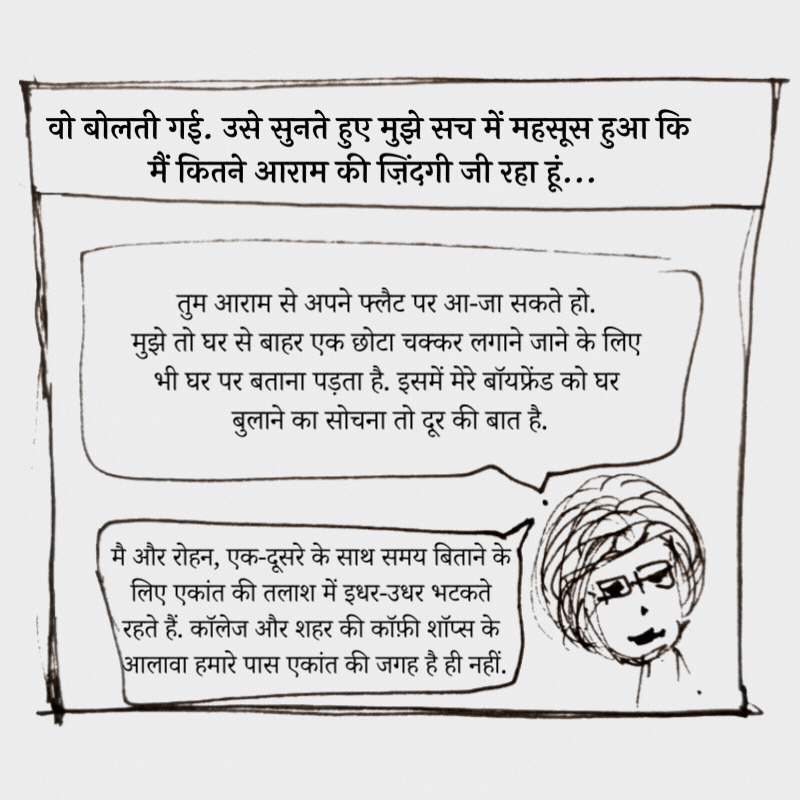 वो बोलती गई. उसे सुनते हुए मुझे सच में महसूस हुआ कि
मैं कितने आराम की ज़िंदगी जी रहा हूं...
तुम आराम से अपने फ्लैट पर आ-जा सकते हो.
मुझे तो घर से बाहर एक छोटा चक्कर लगाने जाने के लिए
भी घर पर बताना पड़ता है. इसमें मेरे बॉयफ्रेंड को घर
बुलाने का सोचना तो दूर की बात है.
मै और रोहन, एक-दूसरे के साथ समय बिताने के
लिए एकांत की तलाश में इधर-उधर भटकते
रहते हैं. कॉलेज और शहर की कॉफ़ी शॉप्स के
आलावा हमारे पास एकांत की जगह है ही नहीं.